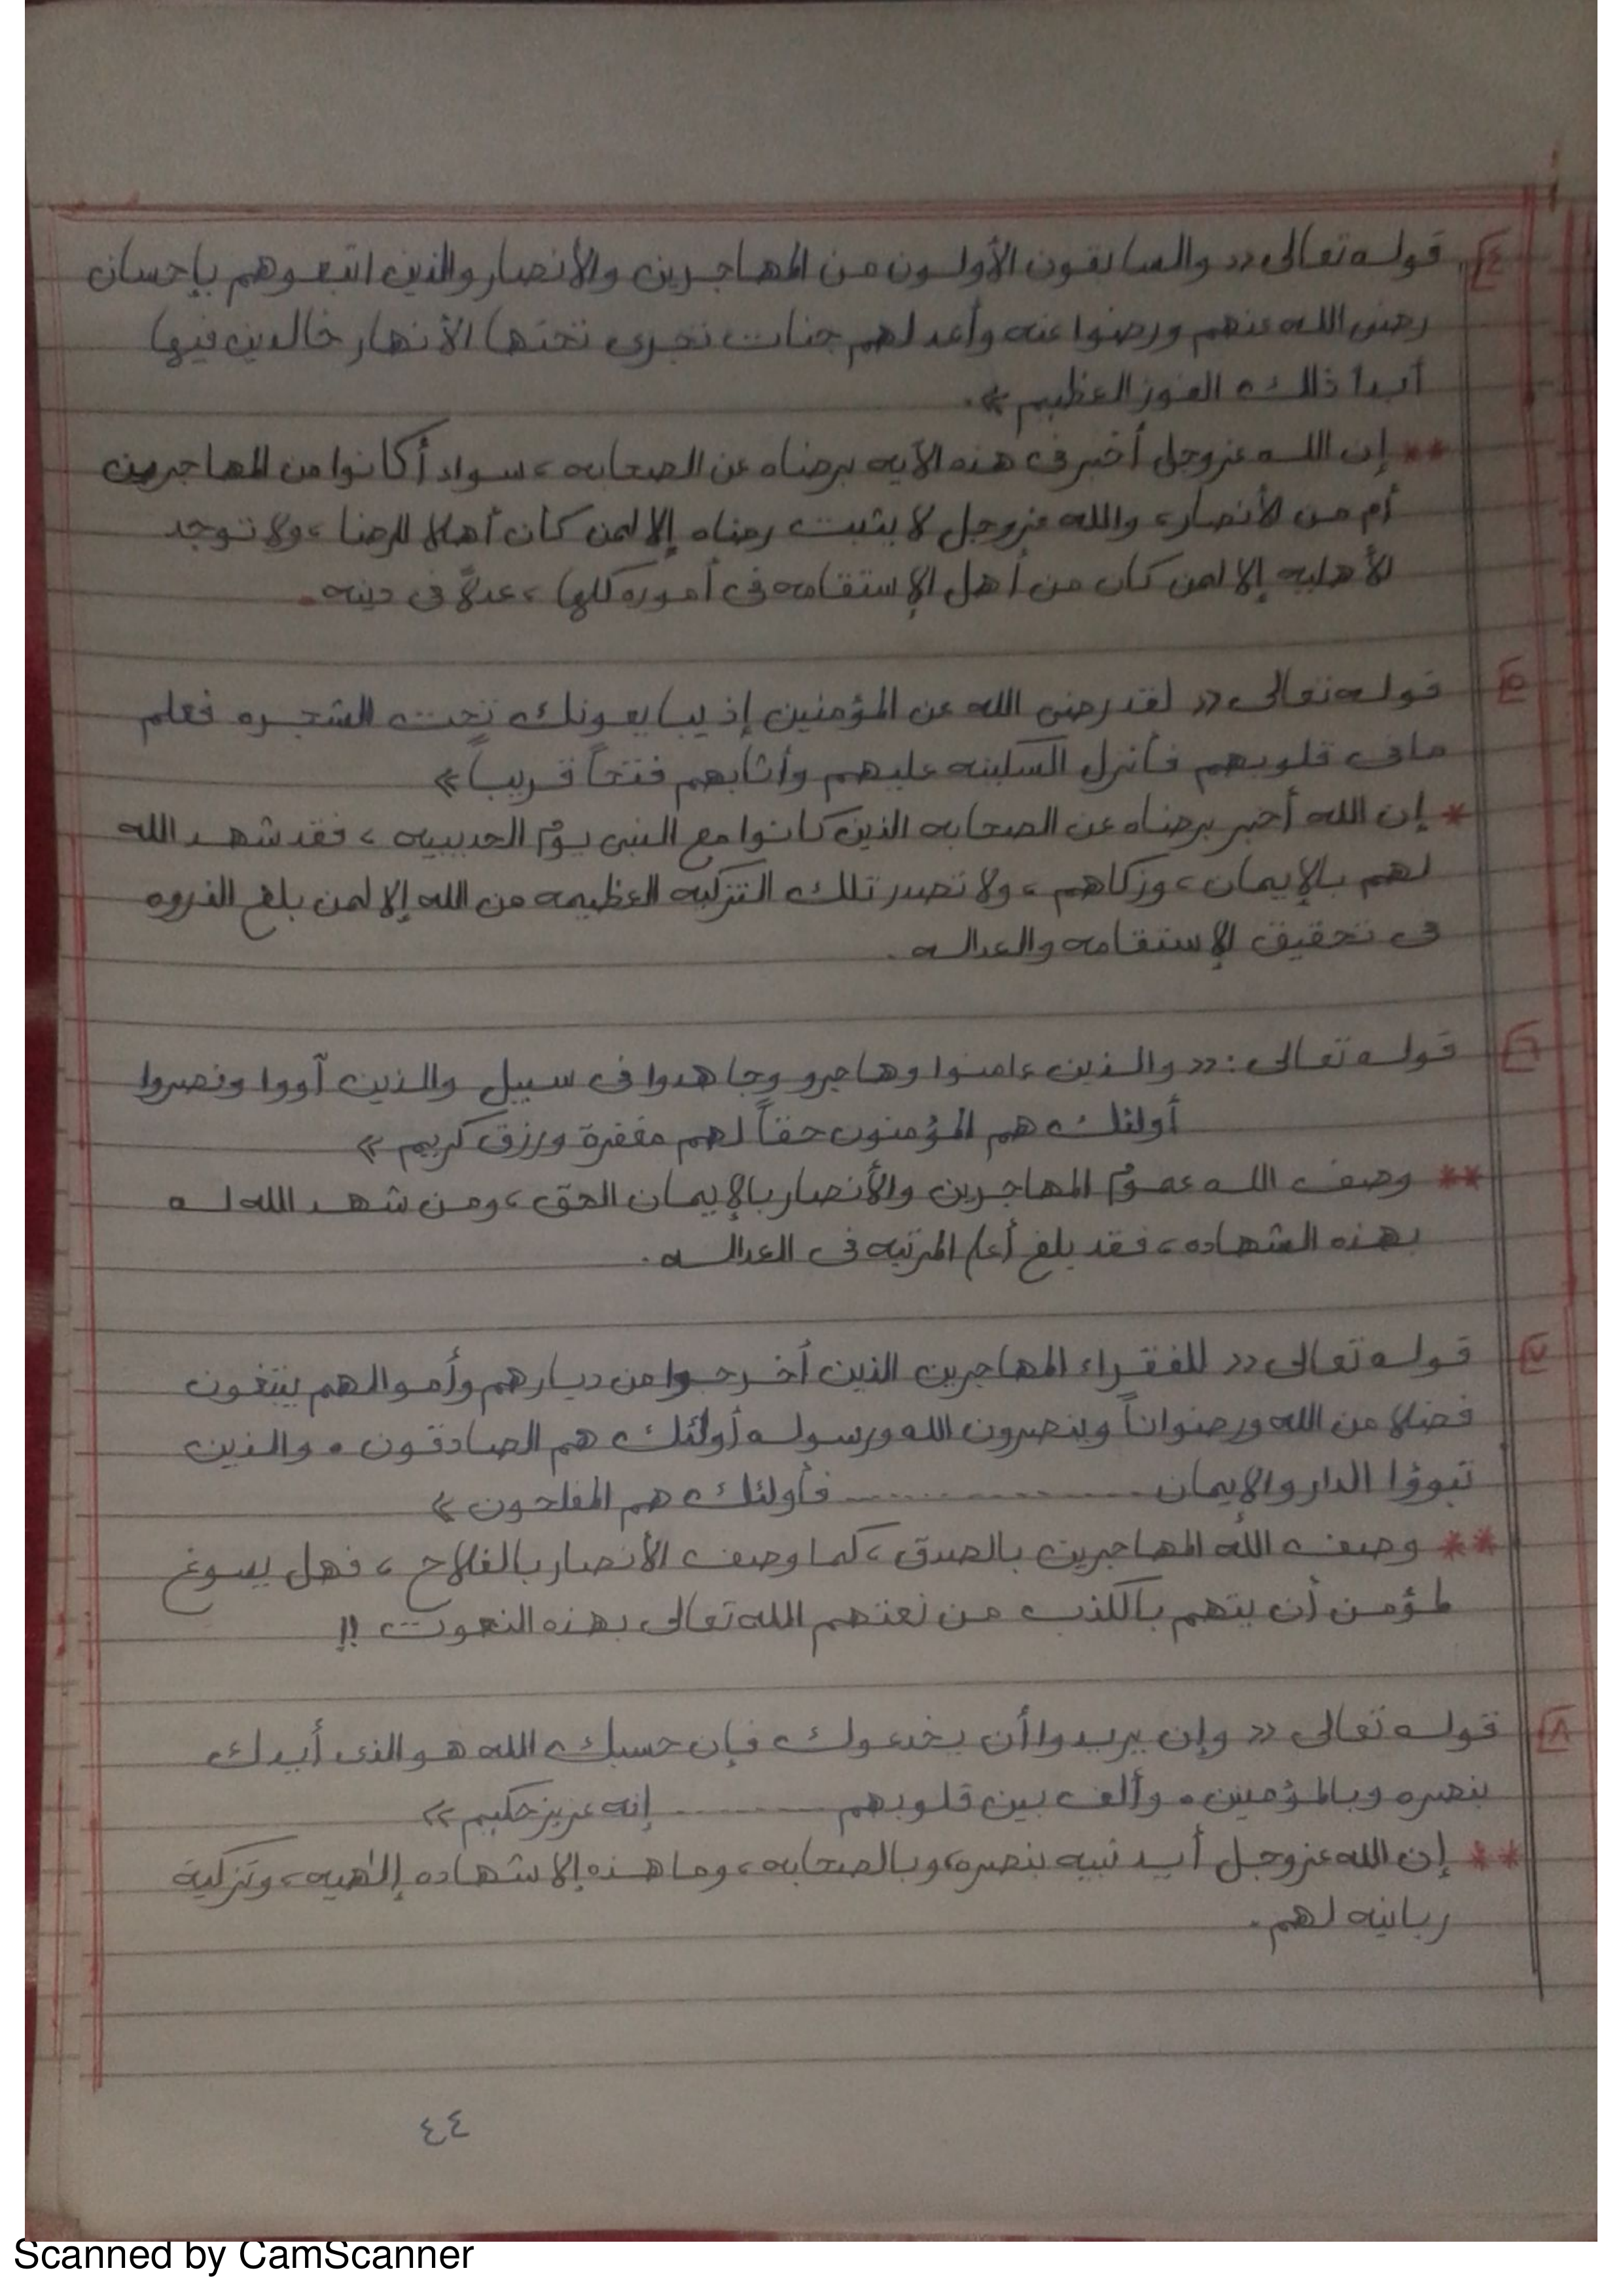 ٤ قوله تعالى «والسابقون الأولون من المهاجرين والأنصار والذين اتبعوهم بإحسان
رضى الله عنهم ورضوا عنه وأعد لهم جنات تجرى تحتها الأنهار خالدين فيها
أبدا ذلك الفوز العظيم».
** إن الله عز وجل أخبر فى هذه الآيه برضاه عن الصحابه، سواء أكانوا من المهاجرين
أم من الأنصار، والله عز وجل لا يثبت رضاه إلا لمن كان أهلا للرضا، ولا توجد
الأهليه إلا لمن كان من أهل الإستقامه فى أموره كلها، عدلاً فى دينه.
٥ قوله تعالى «لقد رضى الله عن المؤمنين إذ يبايعونك تحت الشجره فعلم
مافى قلوبهم فأنزل السكينه عليهم وأثابهم فتحاً قريباً»
* إن الله أخبر برضاه عن الصحابه الذين كانوا مع النبى يوم الحديبيه، فقد شهد الله
لهم بالإيمان، وزكاهم، ولا تصدر تلك التزكيه العظيمه من الله إلا لمن بلغ الذروه
فى تحقيق الإستقامه والعداله.
٦ قوله تعالى: «والذين ءامنوا وهاجرو وجاهدوا فى سبيل والذين آووا ونصروا
أولئك هم المؤمنون حقاً لهم مغفرة ورزق كريم»
** وصف الله عموم المهاجرين والأنصار بالإيمان الحق، ومن شهد الله له
بهذه الشهاده، فقد بلغ أعلى المرتبه فى العداله.
٧ قوله تعالى «للفقراء المهاجرين الذين أخرجوا من ديارهم وأموالهم يبتغون
فضلا من الله ورضواناً وينصرون الله ورسوله أولئك هم الصادقون . والذين
تبوؤا الدار والإيمان ............ فأولئك هم المفلحون»
** وصف الله المهاجرين بالصدق، كما وصف الأنصار بالفلاح، فهل يسوغ
لمؤمن أن يتهم بالكذب من نعتهم الله تعالى بهذه النعوت !!
٨ قوله تعالى «وإن يريدوا أن يخدعوك فإن حسبك الله هو الذى أيدك
بنصره وبالمؤمنين . وألف بين قلوبهم .......... إنه عزيز حكيم»
** إن الله عز وجل أيد نبيه بنصره، وبالصحابه، وما هذه إلا شهاده إلٰهيه، وتزكية
ربانيه لهم.
٤٤
Scanned by CamScanner